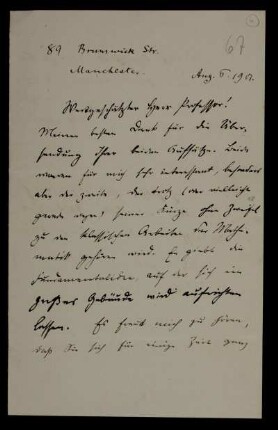 67
89 Brunswick Str.
Manchester.
Aug. 6. 190
Wertgeschätzter Herr Professor!
Meinen besten Dank für die Über-
sendung Ihrer beiden Aufsätze. Beide
waren für mich sehr interessant, besonders
aber der zweite, der trotz (oder vielleicht
gerade wegen) seiner Kürze ohne Zweifel
zu den klassischen Arbeiten der Mathe-
matik gehören wird. Er giebt die
Fundamentalidee, auf der sich ein
großes Gebäude wird aufrichten
lassen. Es freut mich zu hören,
daß Sie sich für einige Zeit ganz